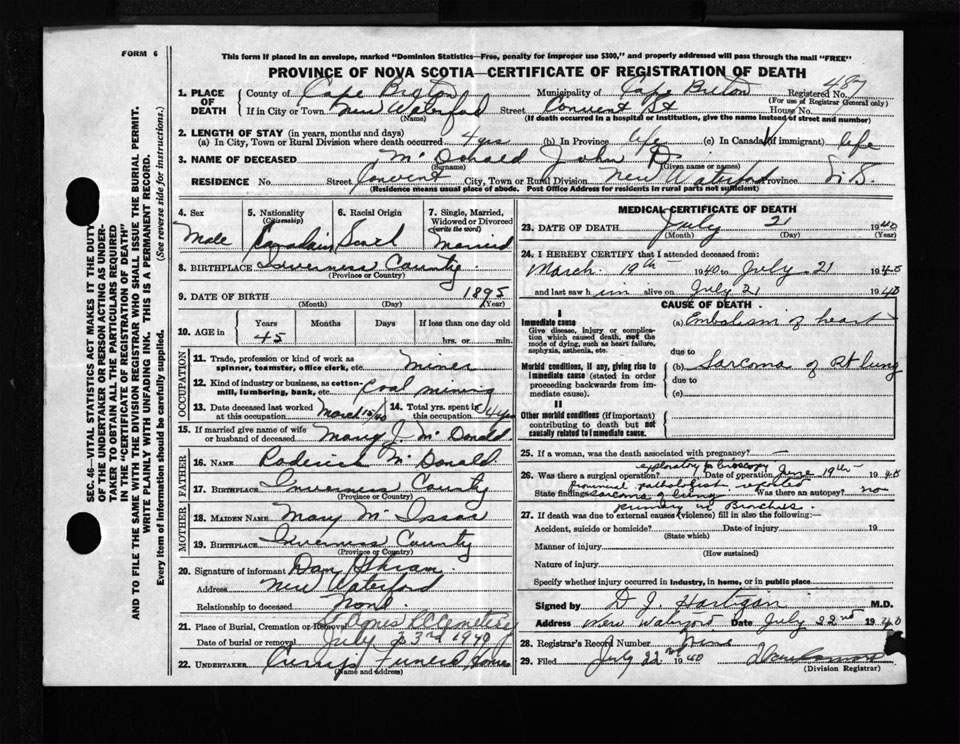 FORM 6
This form if placed in an envelope, marked "Dominion Statistics—Free, penalty for improper use $300," and properly addressed will pass through the mail "FREE"
PROVINCE OF NOVA SCOTIA—CERTIFICATE OF REGISTRATION OF DEATH
SEC. 46—VITAL STATISTICS ACT MAKES IT THE DUTY
OF THE UNDERTAKER OR PERSON ACTING AS UNDER-
TAKER TO OBTAIN ALL THE PARTICULARS REQUIRED
IN THE "CERTIFICATE OF REGISTRATION OF DEATH"
AND TO FILE THE SAME WITH THE DIVISION REGISTRAR WHO SHALL ISSUE THE BURIAL PERMIT.
WRITE PLAINLY WITH UNFADING INK. THIS IS A PERMANENT RECORD.
Every item of information should be carefully supplied. (See reverse side for instructions.)
1. PLACE OF DEATH County of Cape Breton Municipality of Cape Breton Registered No. 487
(For use of Registrar General only)
If in City or Town New Waterford Street Convent St House No.
(Name) (If death occurred in a hospital or institution, give the name instead of street and number)
2. LENGTH OF STAY (in years, months and days)
(a) In City, Town or Rural Division where death occurred 4 yrs (b) In Province life (c) In Canada (if immigrant) life
3. NAME OF DECEASED McDonald John D
(Surname) (Given name or names)
RESIDENCE No. Street Convent City, Town or Rural Division New Waterford Province N.S.
(Residence means usual place of abode. Post Office Address for residents in rural parts not sufficient)
4. Sex 5. Nationality (Citizenship) 6. Racial Origin 7. Single, Married, Widowed or Divorced (write the word)
Male Canadain Scotch Married
8. BIRTHPLACE Inverness County
(Province or Country)
9. DATE OF BIRTH 1895
(Month) (Day) (Year)
10. AGE in Years Months Days If less than one day old
45 hrs. or min.
OCCUPATION
11. Trade, profession or kind of work as spinner, teamster, office clerk, etc. miner
12. Kind of industry or business, as cotton-mill, lumbering, bank, etc. Coal mining
13. Date deceased last worked at this occupation March 15/40 14. Total yrs. spent in this occupation 4 yrs
15. If married give name of wife or husband of deceased Mary J. McDonald
FATHER
16. NAME Roderick McDonald
17. BIRTHPLACE Inverness County
(Province or Country)
MOTHER
18. MAIDEN NAME Mary McIssac
19. BIRTHPLACE Inverness County
(Province or Country)
20. Signature of informant Dan
Address New Waterford
Relationship to deceased None
21. Place of Burial, Cremation or Removal St Agnes R C Cemetery
Date of burial or removal July 23rd 1940
22. UNDERTAKER Funeral Home
(Name and address)
MEDICAL CERTIFICATE OF DEATH
23. DATE OF DEATH July 21 1940
(Month) (Day) (Year)
24. I HEREBY CERTIFY that I attended deceased from:
March 19th 1940 to July 21 1940
and last saw him alive on July 21 1940
CAUSE OF DEATH
I
Immediate cause
Give disease, injury or complication which caused death, not the mode of dying, such as heart failure, asphyxia, asthenia, etc.
(a) Embolism of heart
due to
Morbid conditions, if any, giving rise to immediate cause (stated in order proceeding backwards from immediate cause).
(b) Sarcoma of Rt lung
due to
(c)
II
Other morbid conditions (if important) contributing to death but not causally related to immediate cause.
25. If a woman, was the death associated with pregnancy? —
26. Was there a surgical operation? exploratory bronoscopy Date of operation June 19th 1940
State findings Provincial pathologist reports sarcoma of lung Was there an autopsy? no
primary in Bronchus.
27. If death was due to external causes (violence) fill in also the following:—
Accident, suicide or homicide? Date of injury 19
(State which)
Manner of injury
(How sustained)
Nature of injury
Specify whether injury occurred in industry, in home, or in public place
Signed by D J Hartigan M.D.
Address New Waterford Date July 22nd 1940
28. Registrar's Record Number
29. Filed July 22nd 1940
(Division Registrar)